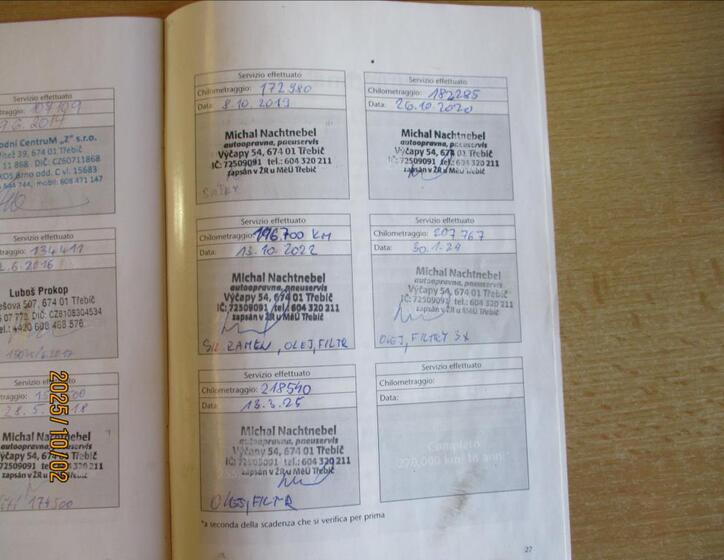 Servizio effettuato
134411
2016
Luboš Prokop
507, 674 01 Třebíč
07 773 DIČ: CZ8108304534
tel.: +420 608 468 576
Servizio
Michal Nachtnebel
autoopravna, pneuservis
Výčapy 54, 674 01 Třebíč
72509091 tel.: 604 320 211
zapsán v ŽR u MěÚ Třebíč
174500
2025/10/02
odní CentruM „Z" s.r.o.
39, 674 01 Třebíč
11 868 DIČ: CZ60711868
Brno odd. C vl. 15683
mobil: 608 471 147
Servizio effettuato
Chilometraggio: 172 980
Data: 8.10.2019
Michal Nachtnebel
autoopravna, pneuservis
Výčapy 54, 674 01 Třebíč
IČ: 72509091 tel.: 604 320 211
zapsán v ŽR u MěÚ Třebíč
Servizio effettuato
Chilometraggio: 182285
Data: 26.10.2020
Michal Nachtnebel
autoopravna, pneuservis
Výčapy 54, 674 01 Třebíč
IČ: 72509091 tel.: 604 320 211
zapsán v ŽR u MěÚ Třebíč
Servizio effettuato
Chilometraggio: 196700 KM
Data: 13.10.2022
Michal Nachtnebel
autoopravna, pneuservis
Výčapy 54, 674 01 Třebíč
IČ: 72509091 tel.: 604 320 211
zapsán v ŽR u MěÚ Třebíč
OLEJ, FILTR
Servizio effettuato
Chilometraggio: 207 767
Data: 30.1.24
Michal Nachtnebel
autoopravna, pneuservis
Výčapy 54, 674 01 Třebíč
IČ: 72509091 tel.: 604 320 211
zapsán v ŽR u MěÚ Třebíč
OLEJ, FILTRY 3x
Servizio effettuato
Chilometraggio: 218540
Data: 13.3.25
Michal Nachtnebel
autoopravna, pneuservis
Výčapy 54, 674 01 Třebíč
IČ: 72509091 tel.: 604 320 211
zapsán v ŽR u MěÚ Třebíč
OLEJ, FILTR
Servizio effettuato
Chilometraggio:
Data:
*a seconda della scadenza che si verifica per prima
27